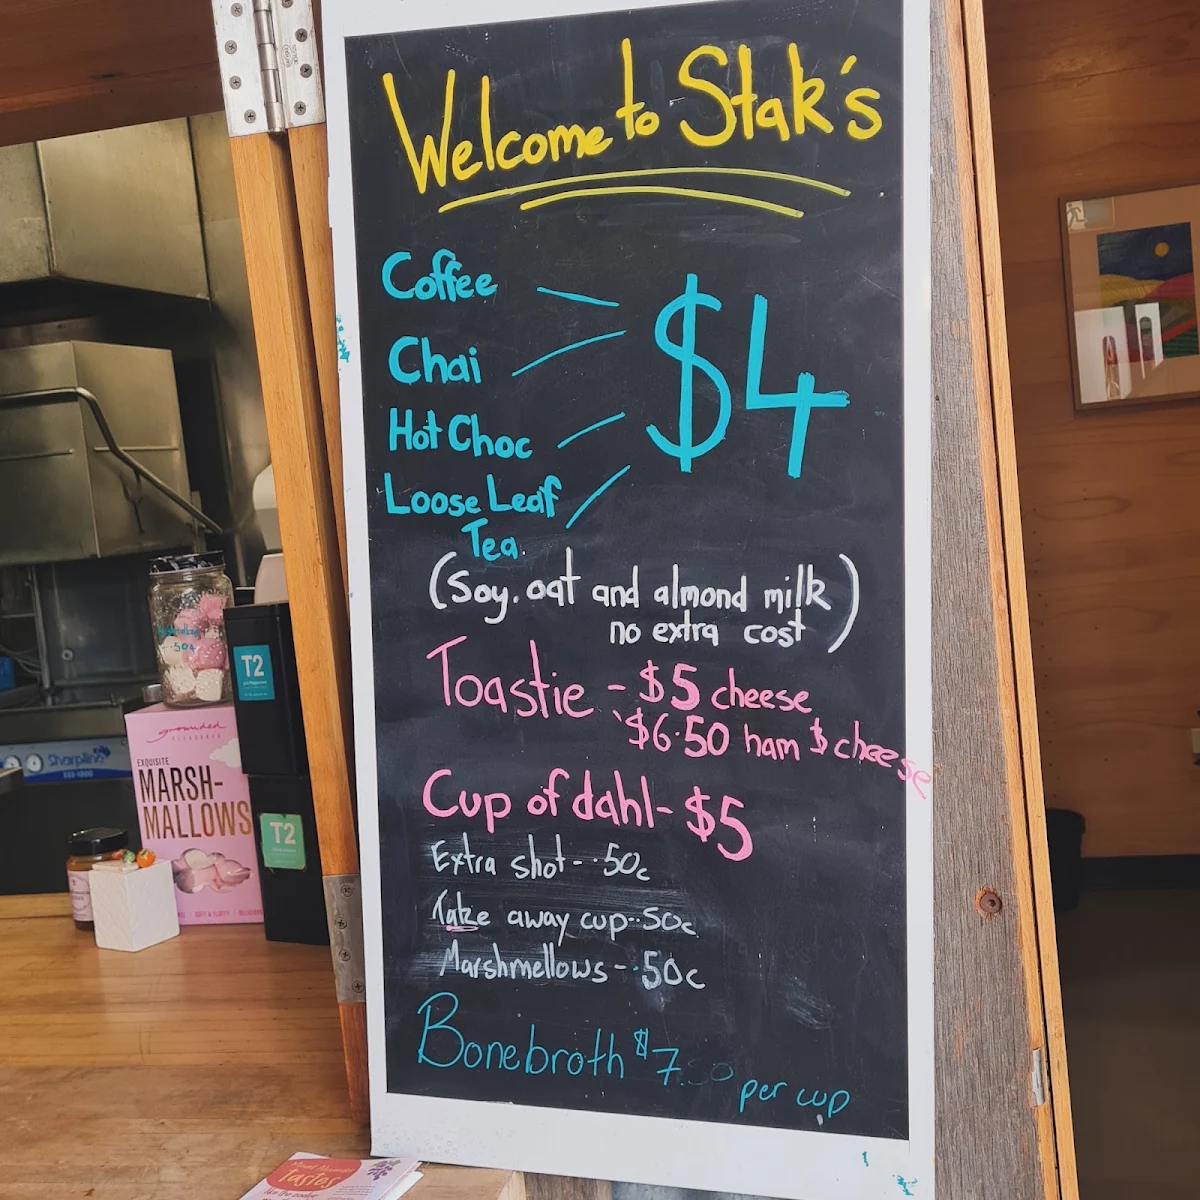 Welcome to Stak's
Coffee
Chai
Hot Choc
Loose Leaf
Tea.
$4
(Soy, oat and almond milk
no extra cost)
Toastie - $5 cheese
$6.50 ham & cheese
Cup of dahl- $5
Extra shot - .50c
Take away cup .50c
Marshmellows - .50c
Bonebroth $7.50 per cup
50¢
T2
grounded
PLEASURES
EXQUISITE
MARSH-
MALLOWS
SOFT & FLUFFY
T2
Sharpline
Tastes